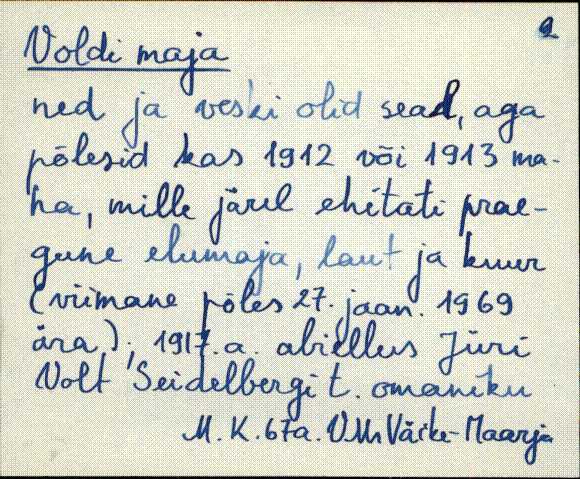 2
Voldi maja
ned ja veski olid sead, aga
põlesid kas 1912 või 1913 ma-
ha, mille järel ehitati prae-
gune elumaja, laut ja kuur
(viimane põles 27. jaan. 1969
ära); 1917. a. abiellus Jüri
Volt Seidelbergi t. omaniku
M. K. 67a. V.Mr Väike-Maarja